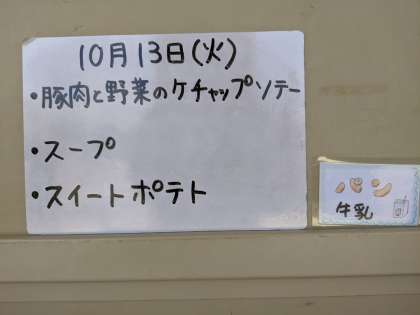 10月13日(火)
・豚肉と野菜のケチャップソテー
・スープ
・スイートポテト
パン
牛乳